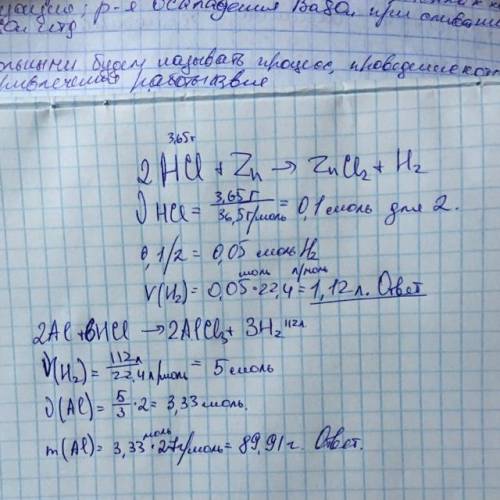 р-я осаждения BaSO₄ при сливании
будем называть процесс, проведение
работы извне
3,65 г
2HCl + Zn → ZnCl₂ + H₂
ν HCl = 3,65 г / 36,5 г/моль = 0,1 моль для 2.
0,1/2 = 0,05 моль H₂
моль л/моль
V(H₂) = 0,05·22,4 = 1,12 л. Ответ
2Al + 6HCl → 2AlCl₃ + 3H₂ 112 л
ν(H₂) = 112 л / 22,4 л/моль = 5 моль
ν(Al) = 5/3 · 2 = 3,33 моль.
моль
m(Al) = 3,33 · 27 г/моль = 89,91 г. Ответ.